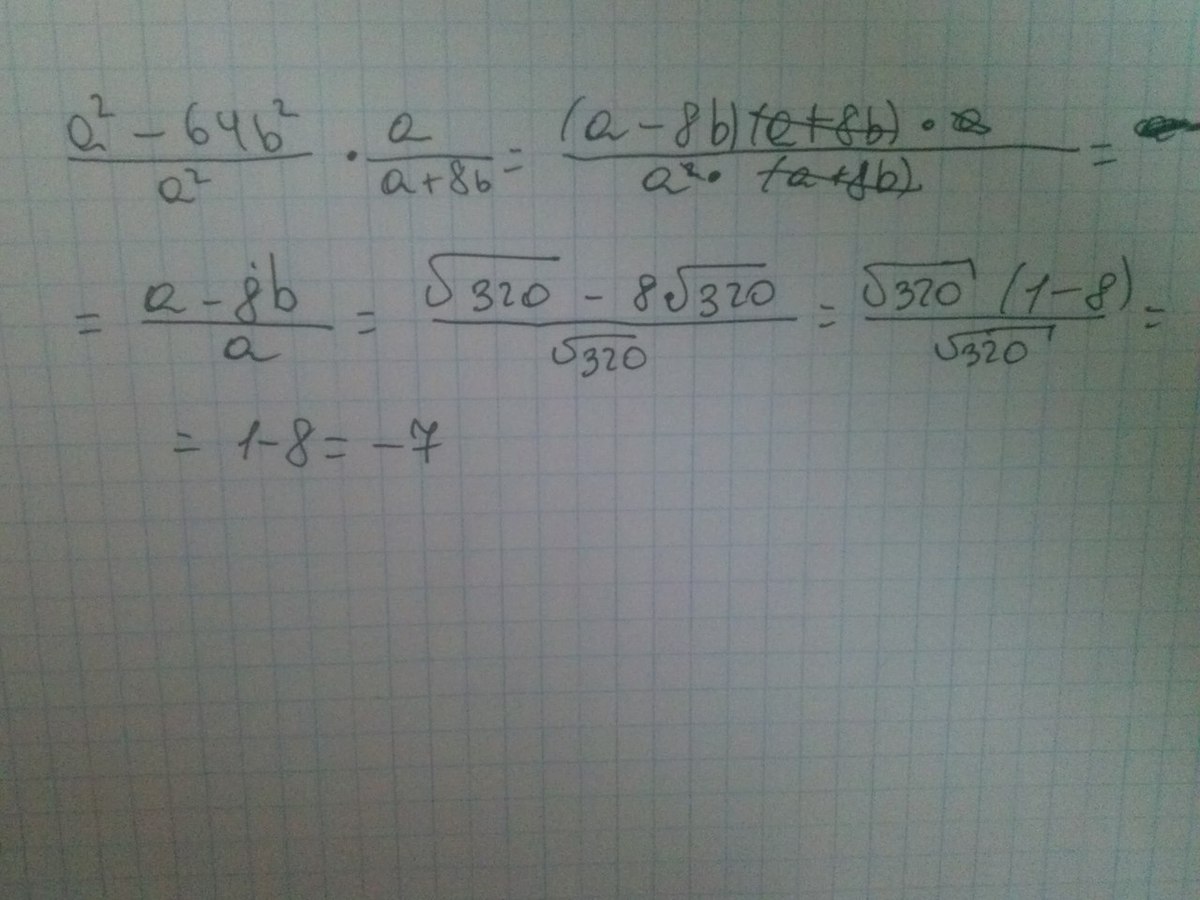 a² - 64b² / a² · a / a+8b = (a - 8b)(a+8b) · a / a² · (a+8b) =
= a - 8b / a = √320 - 8√320 / √320 = √320 (1-8) / √320 =
= 1-8 = -7